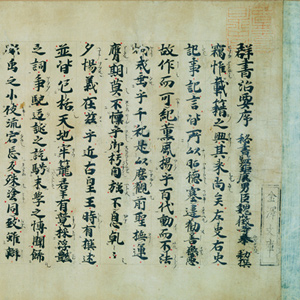 群書治要序 秘書監鉅鹿男臣魏徵等奉 勅撰
竊惟載籍之興其来尚矣左史右史
記事記言皆所以昭德塞違勸善懲惡
故作而可紀薰風揚乎百代動而不法
炯戒垂乎千祀是以歷觀前聖撫運
膺期莫不懍乎御朽自強不息乾々
夕惕義在茲乎近古皇王時有撰述
並皆包括天地牢籠群有競採浮艷
之詞爭馳迂誕之說騁末學之博聞飾
雕蟲之小伎流宕忘反殊塗同致雖辯
金澤文庫